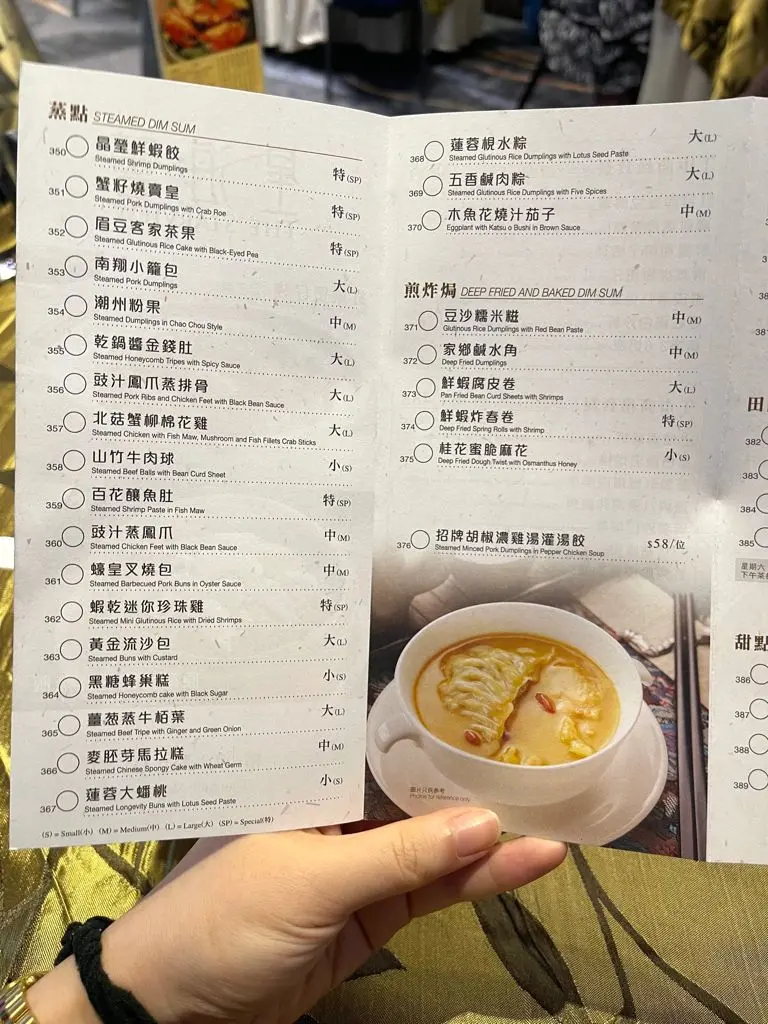 蒸點 STEAMED DIM SUM
350 晶瑩鮮蝦餃 特(SP)
Steamed Shrimp Dumplings
351 蟹籽燒賣皇 特(SP)
Steamed Pork Dumplings with Crab Roe
352 眉豆客家茶果 特(SP)
Steamed Glutinous Rice Cake with Black-Eyed Pea
353 南翔小籠包 大(L)
Steamed Pork Dumplings
354 潮州粉果 中(M)
Steamed Dumplings in Chao Chou Style
355 乾鍋醬金錢肚 大(L)
Steamed Honeycomb Tripes with Spicy Sauce
356 豉汁鳳爪蒸排骨 大(L)
Steamed Pork Ribs and Chicken Feet with Black Bean Sauce
357 北菇蟹柳棉花雞 大(L)
Steamed Chicken with Fish Maw, Mushroom and Fish Fillets Crab Sticks
358 山竹牛肉球 小(S)
Steamed Beef Balls with Bean Curd Sheet
359 百花釀魚肚 特(SP)
Steamed Shrimp Paste in Fish Maw
360 豉汁蒸鳳爪 中(M)
Steamed Chicken Feet with Black Bean Sauce
361 蠔皇叉燒包 中(M)
Steamed Barbecued Pork Buns in Oyster Sauce
362 蝦乾迷你珍珠雞 特(SP)
Steamed Mini Glutinous Rice with Dried Shrimps
363 黃金流沙包 大(L)
Steamed Buns with Custard
364 黑糖蜂巢糕 小(S)
Steamed Honeycomb cake with Black Sugar
365 薑葱蒸牛栢葉 大(L)
Steamed Beef Tripe with Ginger and Green Onion
366 麥胚芽馬拉糕 中(M)
Steamed Chinese Spongy Cake with Wheat Germ
367 蓮蓉大蟠桃 小(S)
Steamed Longevity Buns with Lotus Seed Paste
(S) = Small(小) (M) = Medium(中) (L) = Large(大) (SP) = Special(特)
368 蓮蓉梘水粽 大(L)
Steamed Glutinous Rice Dumplings with Lotus Seed Paste
369 五香鹹肉粽 大(L)
Steamed Glutinous Rice Dumplings with Five Spices
370 木魚花燒汁茄子 中(M)
Eggplant with Katsu o Bushi in Brown Sauce
煎炸焗 DEEP FRIED AND BAKED DIM SUM
371 豆沙糯米糍 中(M)
Glutinous Rice Dumplings with Red Bean Paste
372 家鄉鹹水角 中(M)
Deep Fried Dumplings
373 鮮蝦腐皮卷 大(L)
Pan Fried Bean Curd Sheets with Shrimps
374 鮮蝦炸春卷 特(SP)
Deep Fried Spring Rolls with Shrimp
375 桂花蜜脆麻花 小(S)
Deep Fried Dough Twist with Osmanthus Honey
376 招牌胡椒濃雞湯灌湯餃 $58/位
Steamed Minced Pork Dumplings in Pepper Chicken Soup
圖片只供參考
Photos for reference only
田
382
383
384
385
星期六
下午茶
甜點
386
387
388
389